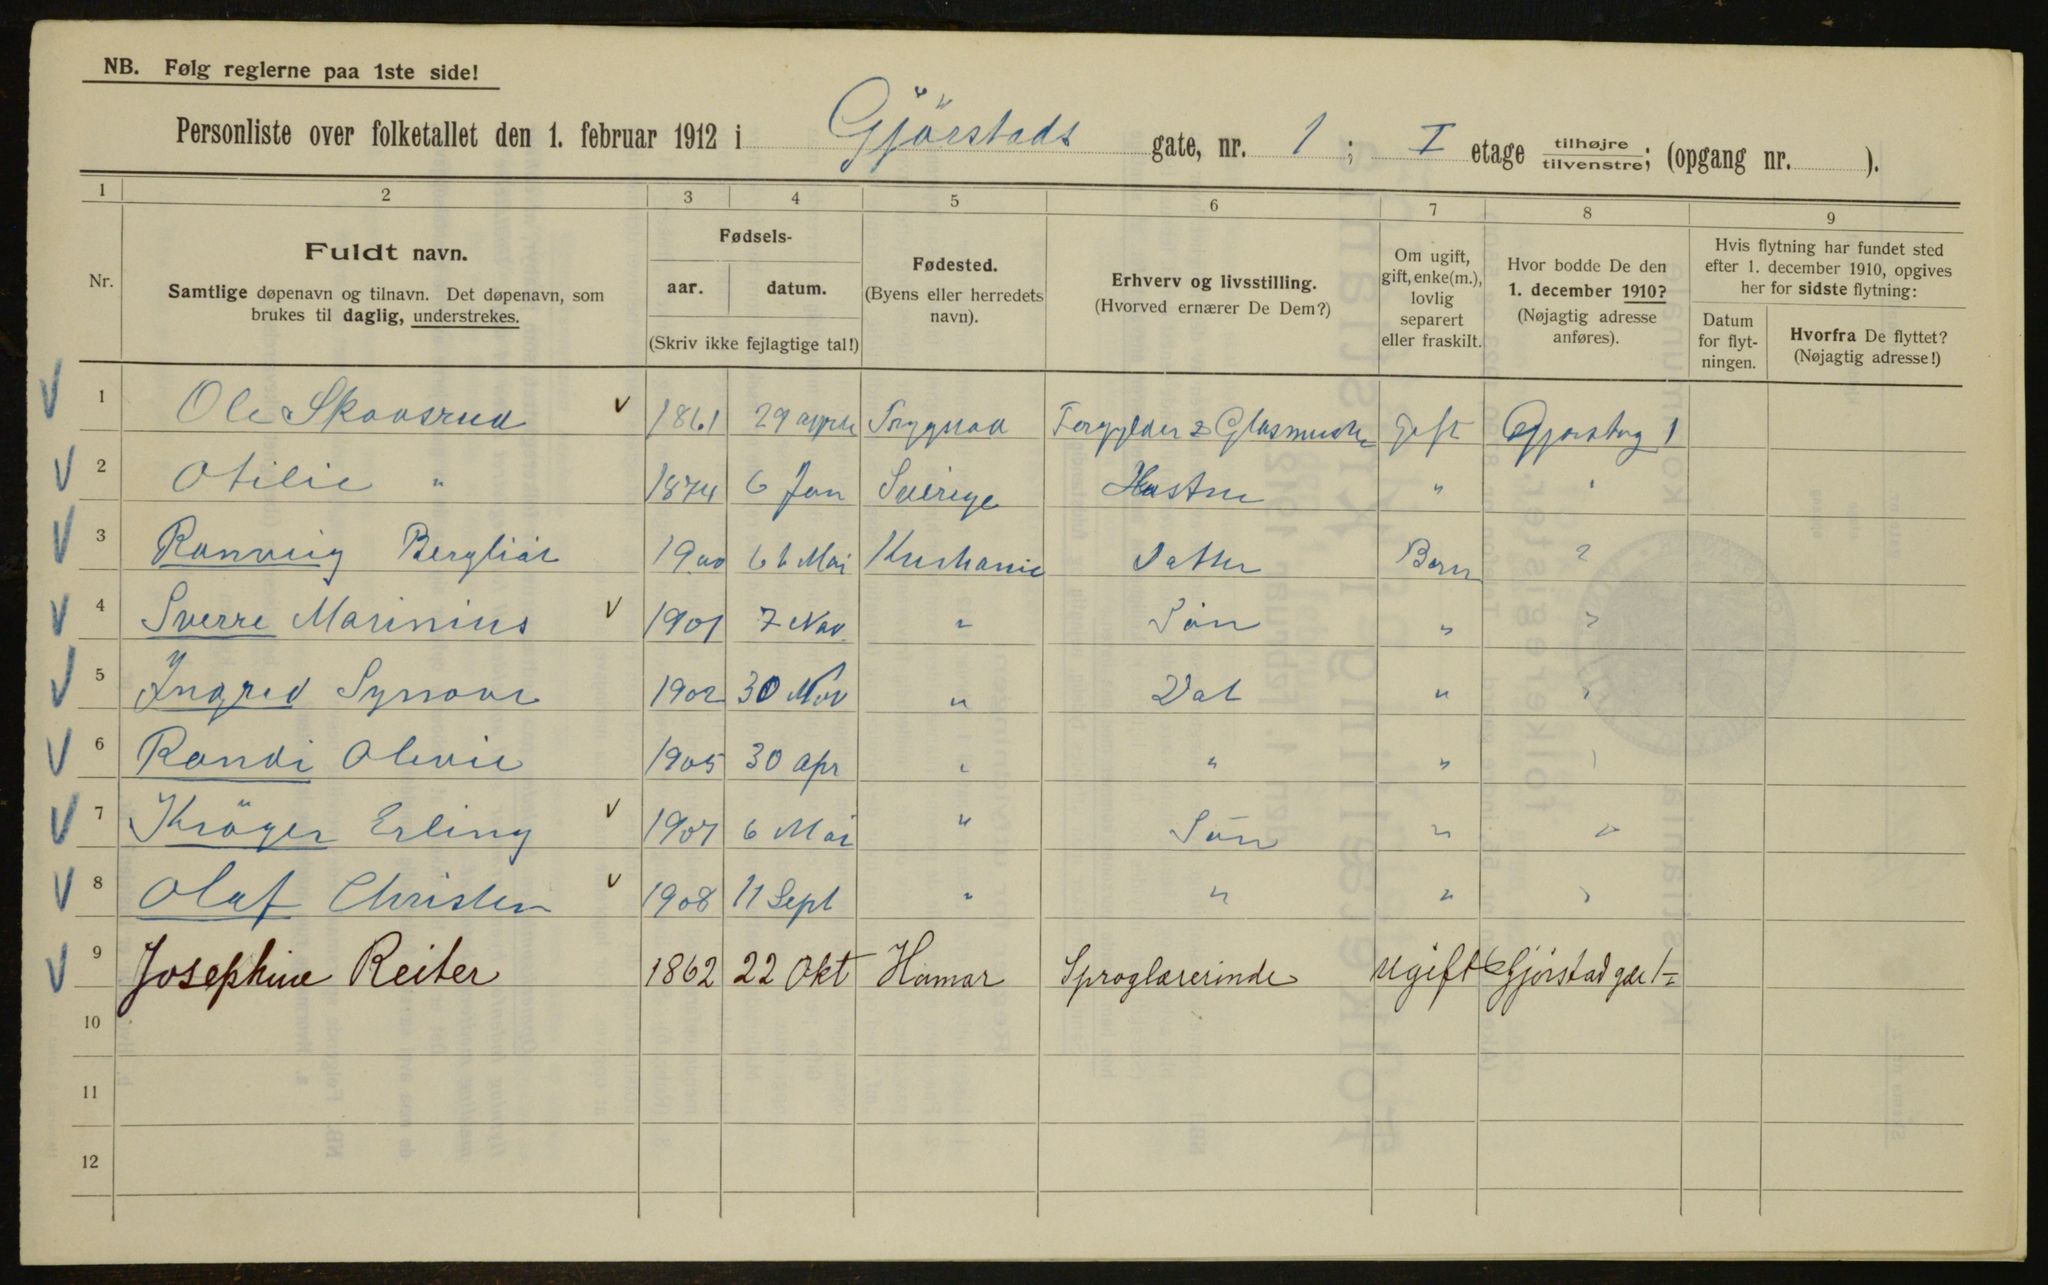 NB. Følg reglerne paa 1ste side!
Personliste over folketallet den 1. februar 1912 i Gjörstads gate, nr. 1 ; I etage tilhøjre / tilvenstre; (opgang nr. ).
1 2 3 4 5 6 7 8 9
Nr.
Fuldt navn.
Samtlige døpenavn og tilnavn. Det døpenavn, som
brukes til daglig, understrekes.
Fødsels-
aar. datum.
(Skriv ikke fejlagtige tal!)
Fødested.
(Byens eller herredets
navn).
Erhverv og livsstilling.
(Hvorved ernærer De Dem?)
Om ugift,
gift, enke(m.),
lovlig
separert
eller fraskilt.
Hvor bodde De den
1. december 1910?
(Nøjagtig adresse
anføres).
Hvis flytning har fundet sted
efter 1. december 1910, opgives
her for sidste flytning:
Datum
for flyt-
ningen.
Hvorfra De flyttet?
(Nøjagtig adresse!)
1 Ole Skovsrud 1861 29 Gift 1
2 Otilie " 1874 6 Jan Sverige " "
3 Ranveig Bergliot 1900 Mai Datter Barn "
4 Sverre Marinius 1901 7 Nov " Sön " "
5 Ingred Synove 1902 30 Nov " Dat " "
6 Randi Olevie 1905 30 apr " " " "
7 Kröger Erling 1907 6 Mai " Sön " "
8 Olaf Christen 1908 11 Sept " " " "
9 Josephine Reiter 1862 22 Okt Hamar Sproglærerinde ugift Gjörstadgae 1
10
11
12